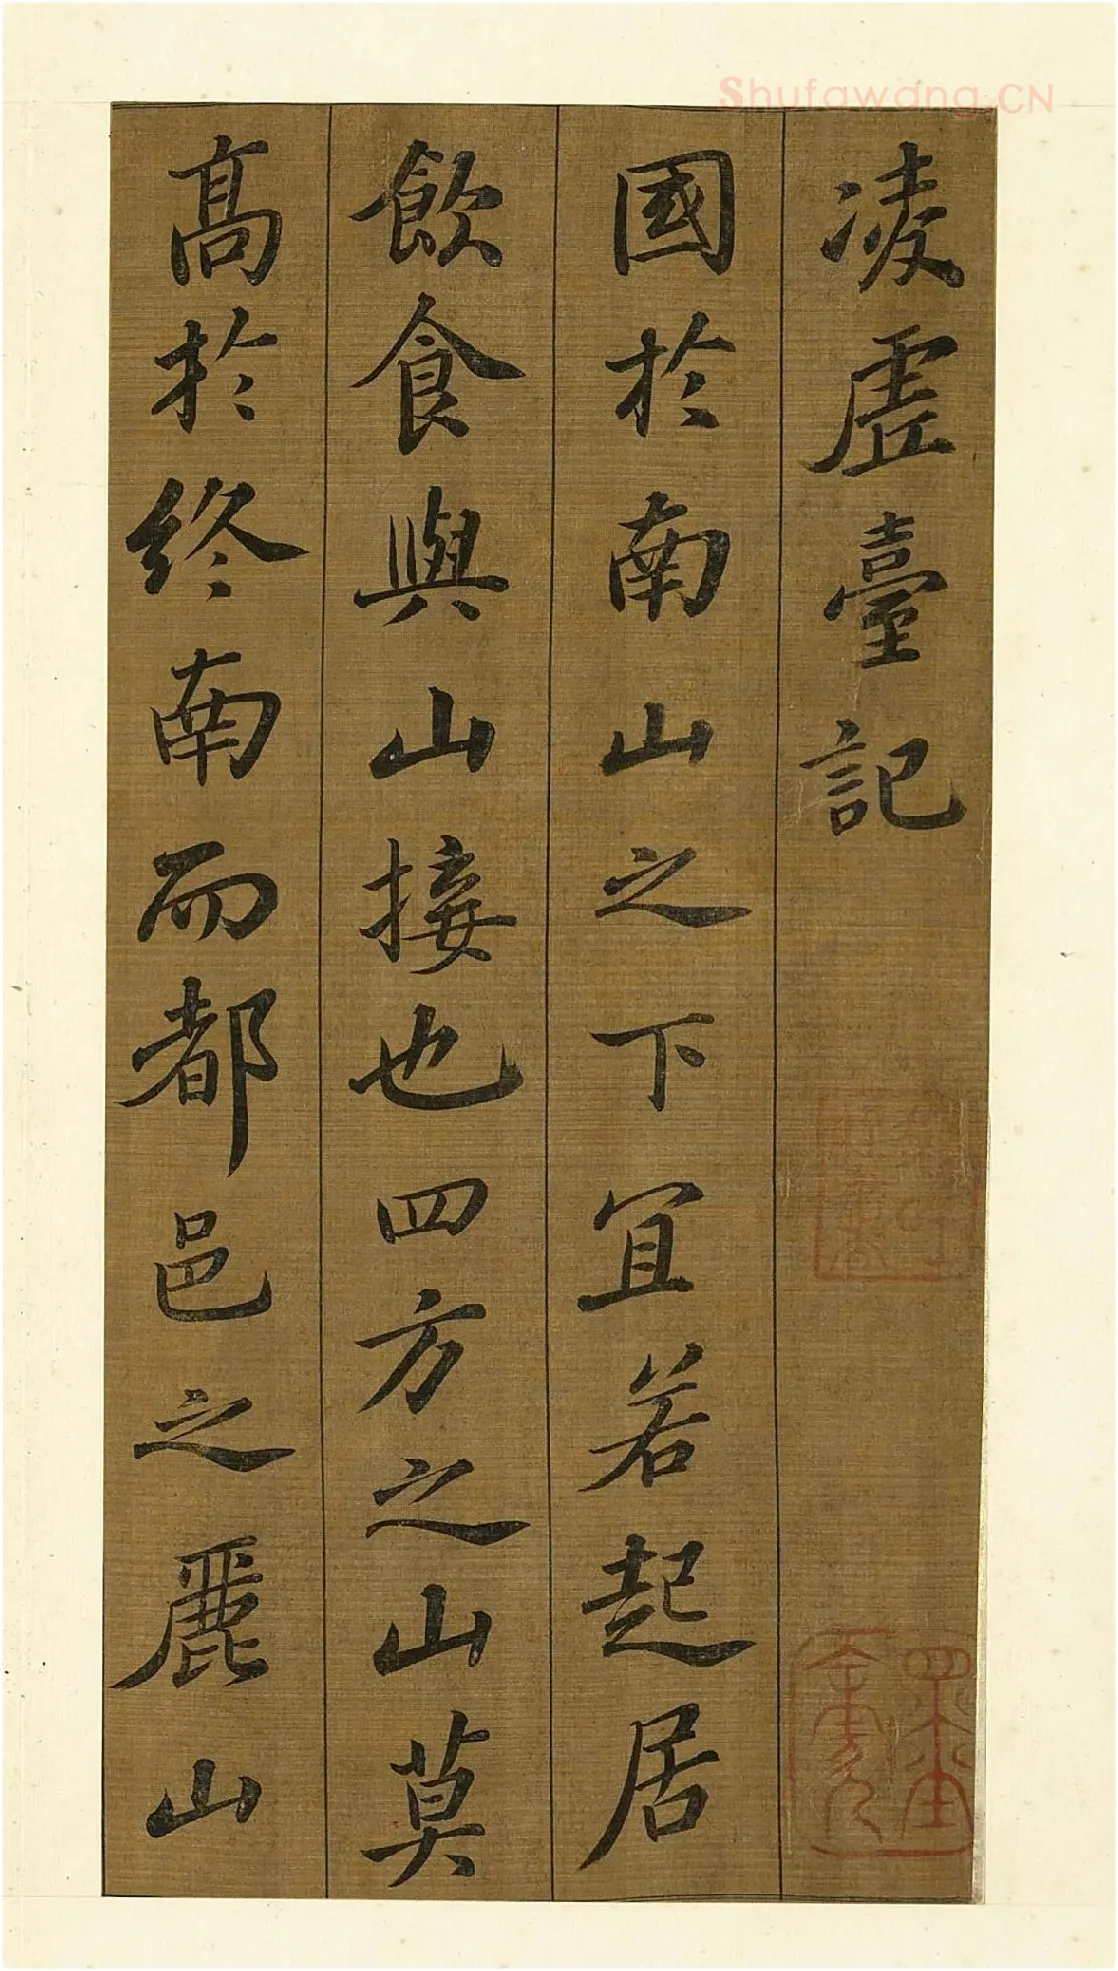 凌虛臺記
國於南山之下宜若起居
飲食與山接也四方之山莫
高於終南而都邑之麗山
Shufawang.CN